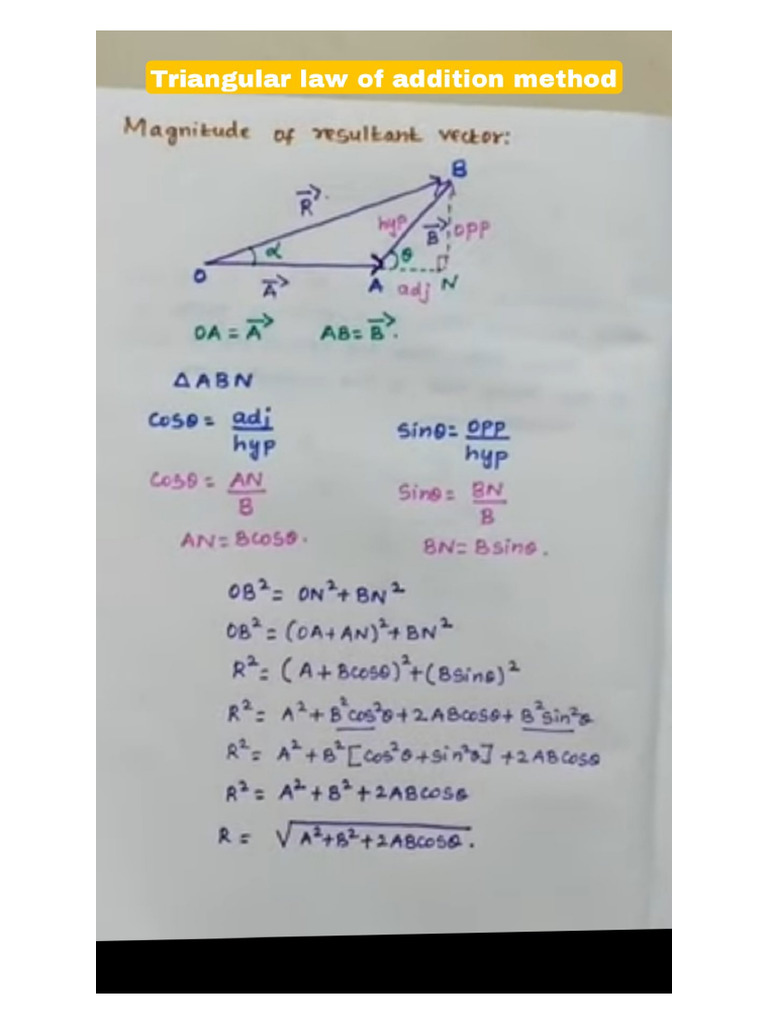 Triangular law of addition method
Magnitude of resultant vector:
B
R⃗
hyp
B⃗
opp
α
θ
O
A⃗
A
adj
N
OA = A⃗ AB = B⃗.
△ABN
Cosθ = adj/hyp Sinθ = opp/hyp
Cosθ = AN/B Sinθ = BN/B
AN = Bcosθ. BN = Bsinθ.
OB² = ON² + BN²
OB² = (OA + AN)² + BN²
R² = (A + Bcosθ)² + (Bsinθ)²
R² = A² + B²cos²θ + 2ABcosθ + B²sin²θ
R² = A² + B² [cos²θ + sin²θ] + 2ABcosθ
R² = A² + B² + 2ABcosθ
R = √A² + B² + 2ABcosθ.